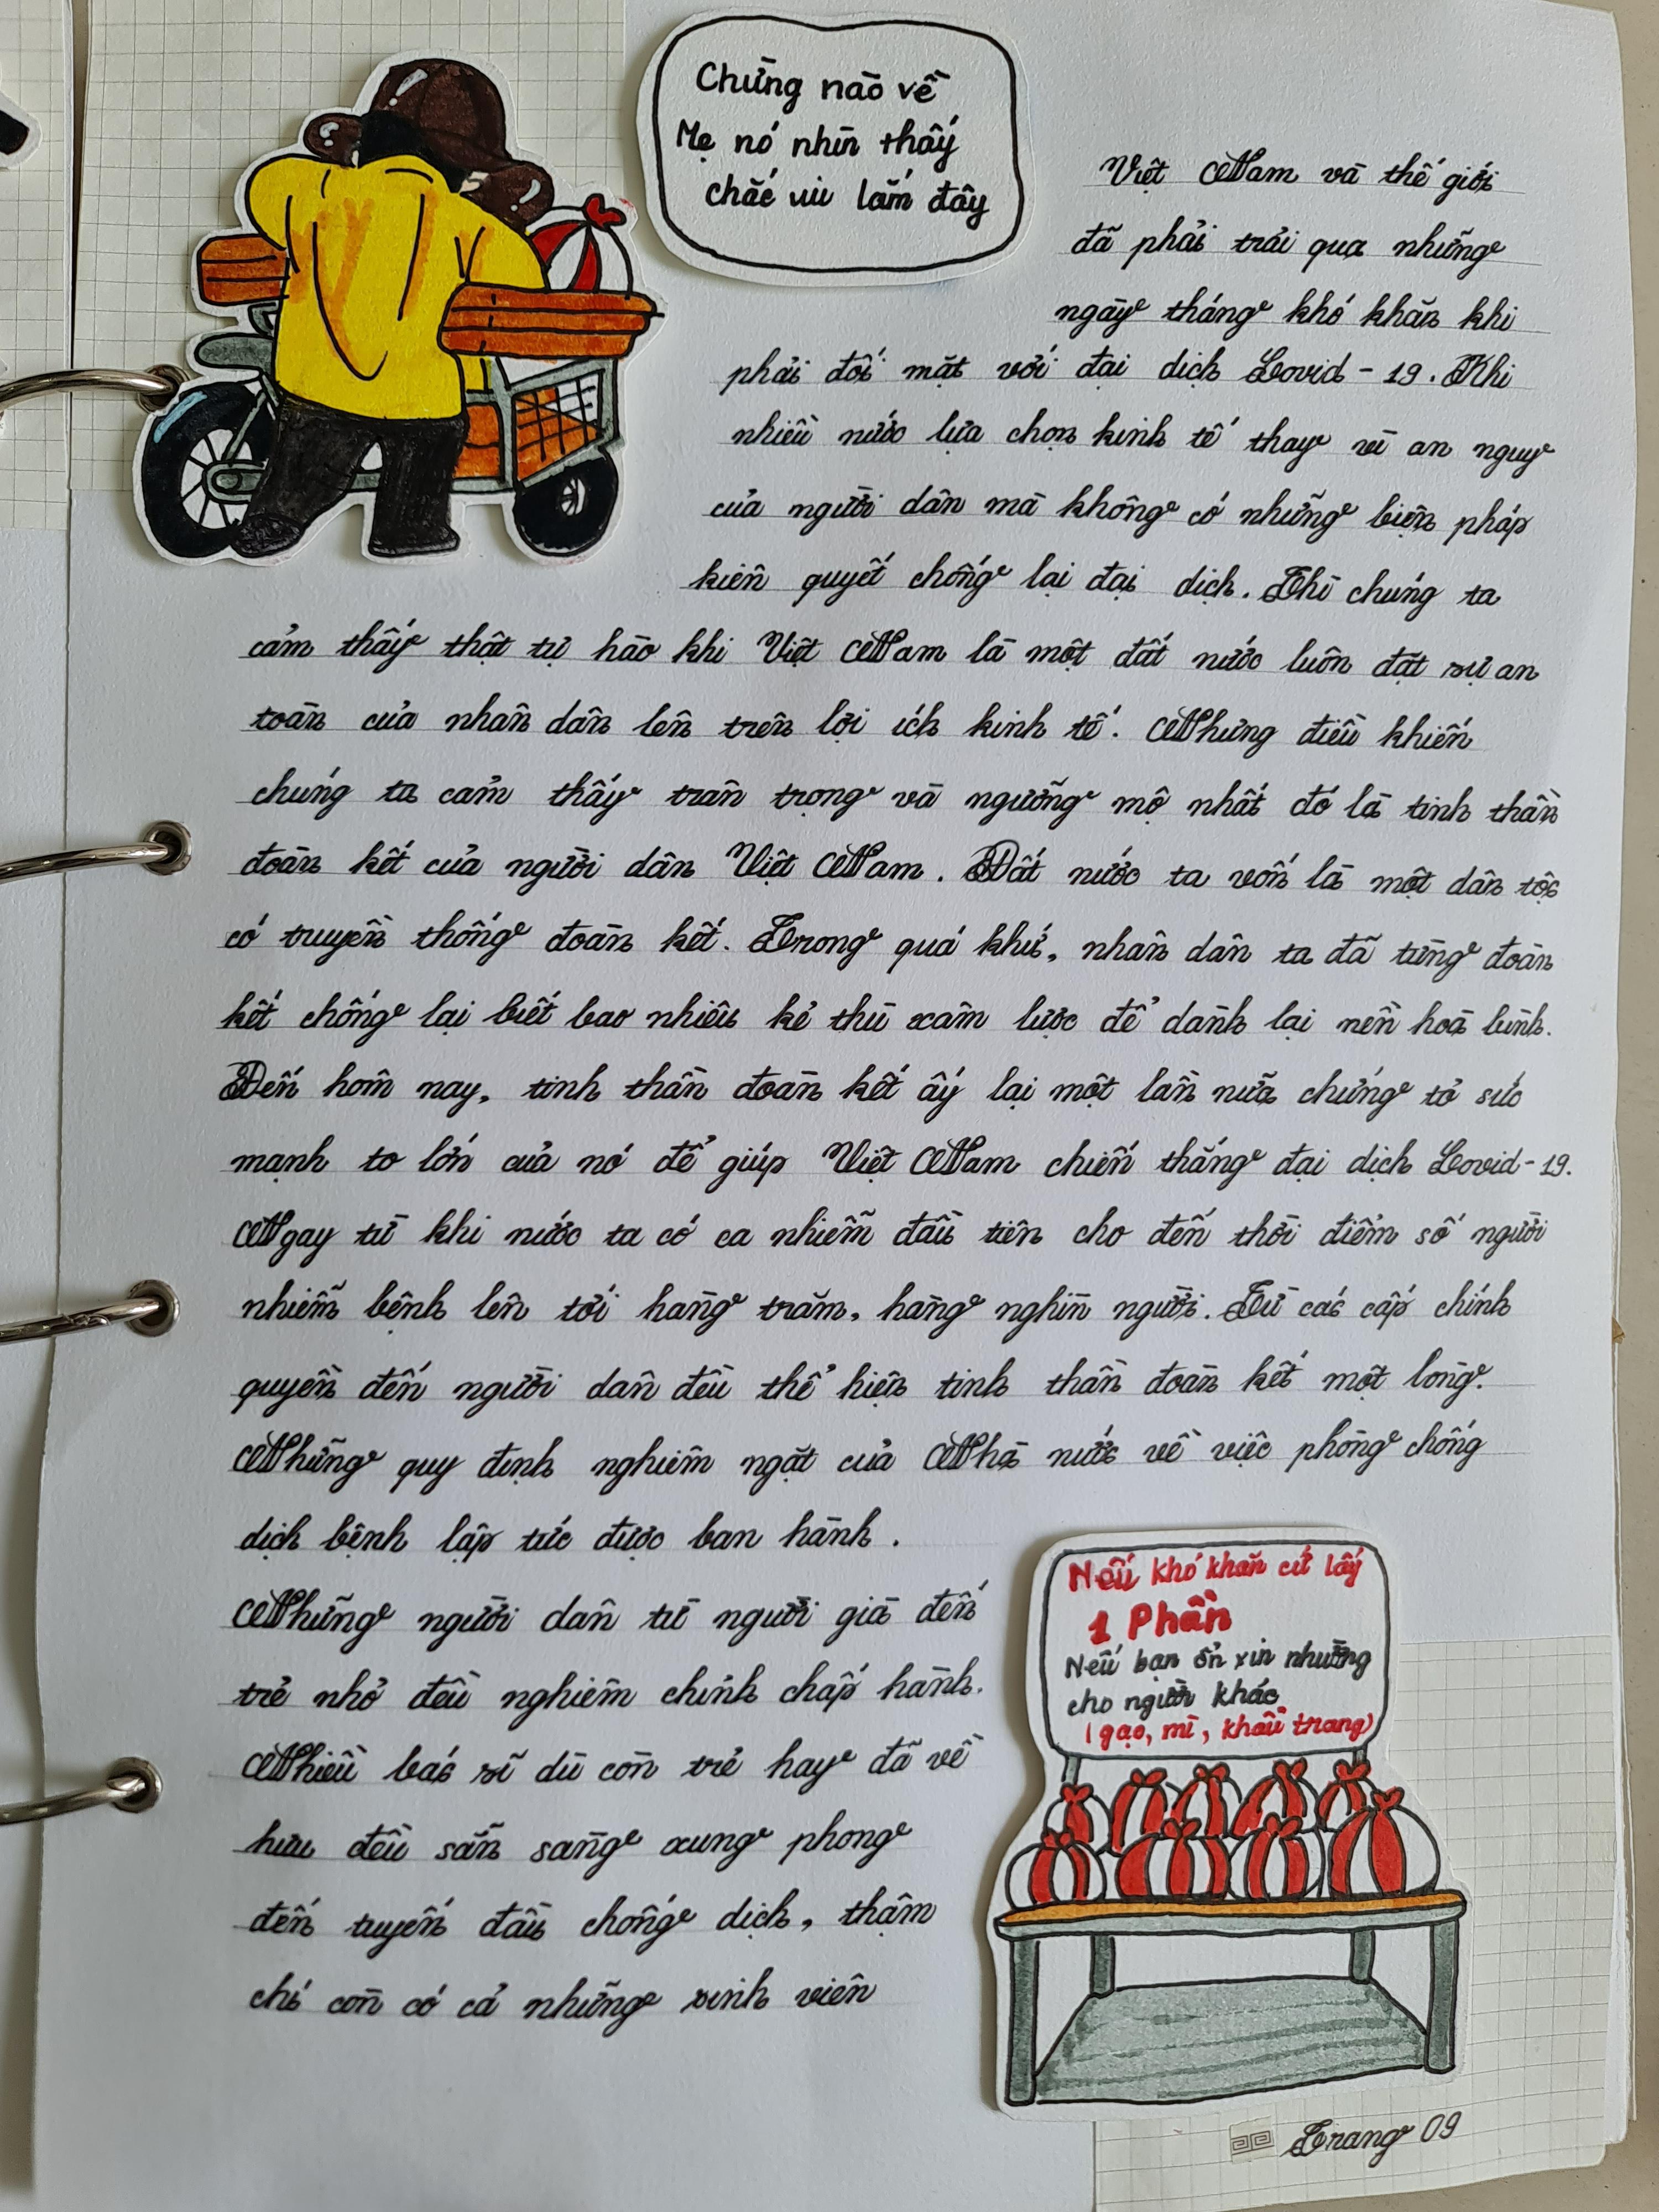 Chừng nào về
Mẹ nó nhìn thấy
chắc vui lắm đây
Việt Nam và thế giới
đã phải trải qua những
ngày tháng khó khăn khi
phải đối mặt với đại dịch Covid - 19. Khi
nhiều nước lựa chọn kinh tế thay vì an nguy
của người dân mà không có những biện pháp
kiên quyết chống lại đại dịch. Thì chúng ta
cảm thấy thật tự hào khi Việt Nam là một đất nước luôn đặt sự an
toàn của nhân dân lên trên lợi ích kinh tế. Nhưng điều khiến
chúng ta cảm thấy trân trọng và ngưỡng mộ nhất đó là tinh thần
đoàn kết của người dân Việt Nam. Đất nước ta vốn là một dân tộc
có truyền thống đoàn kết. Trong quá khứ, nhân dân ta đã từng đoàn
kết chống lại biết bao nhiêu kẻ thù xâm lược để dành lại nền hoà bình.
Đến hôm nay, tinh thần đoàn kết ấy lại một lần nữa chứng tỏ sức
mạnh to lớn của nó để giúp Việt Nam chiến thắng đại dịch Covid-19.
Ngay từ khi nước ta có ca nhiễm đầu tiên cho đến thời điểm số người
nhiễm bệnh lên tới hàng trăm, hàng nghìn người. Từ các cấp chính
quyền đến người dân đều thể hiện tinh thần đoàn kết một lòng.
Những quy định nghiêm ngặt của Nhà nước về việc phòng chống
dịch bệnh lập tức được ban hành.
Những người dân từ người già đến
trẻ nhỏ đều nghiêm chỉnh chấp hành.
Nhiều bác sĩ dù còn trẻ hay đã về
hưu đều sẵn sàng xung phong
đến tuyến đầu chống dịch, thậm
chí còn có cả những sinh viên
Nếu khó khăn cứ lấy
1 Phần
Nếu bạn ổn xin nhường
cho người khác
(gạo, mì, khẩu trang)
Trang 09